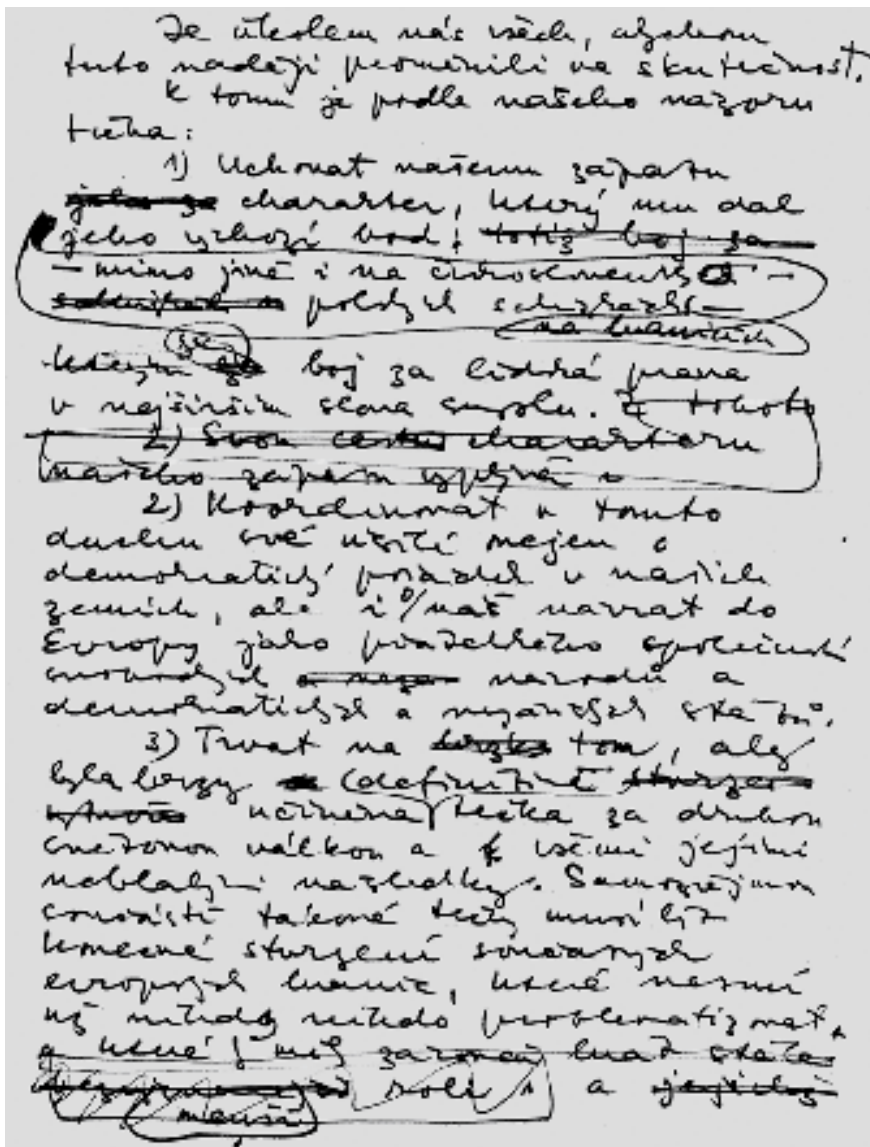 Je úkolem nás všech, abychom
tuto naději proměnili ve skutečnost.
K tomu je podle našeho názoru
třeba:
1) Uchovat našemu zápasu
charakter, který mu dal
jeho výchozí bod, totiž boj za
– mimo jiné i na československých –
polských schůzkách –
na hranicích
kterým je boj za lidská práva
v nejširším slova smyslu. Z tohoto
2) Svou cestu charakteru
našeho zápasu vyplývá
2) Koordinovat v tomto
duchu své úsilí nejen o
demokratický pořádek v našich
zemích, ale i o náš návrat do
Evropy jako přátelského společenství
svobodných národů a
demokratických a nezávislých států.
3) Trvat na tom, aby
byla brzy (definitivně
učiněna) tečka za druhou
světovou válkou a všemi jejími
neblahými následky. Samozřejmou
součástí takové tečky musí být
konečné stvrzení současných
evropských hranic, které nesmí
už nikdy nikdo problematizovat,
a které by měly zároveň hrát stále
menší
roli a jejichž